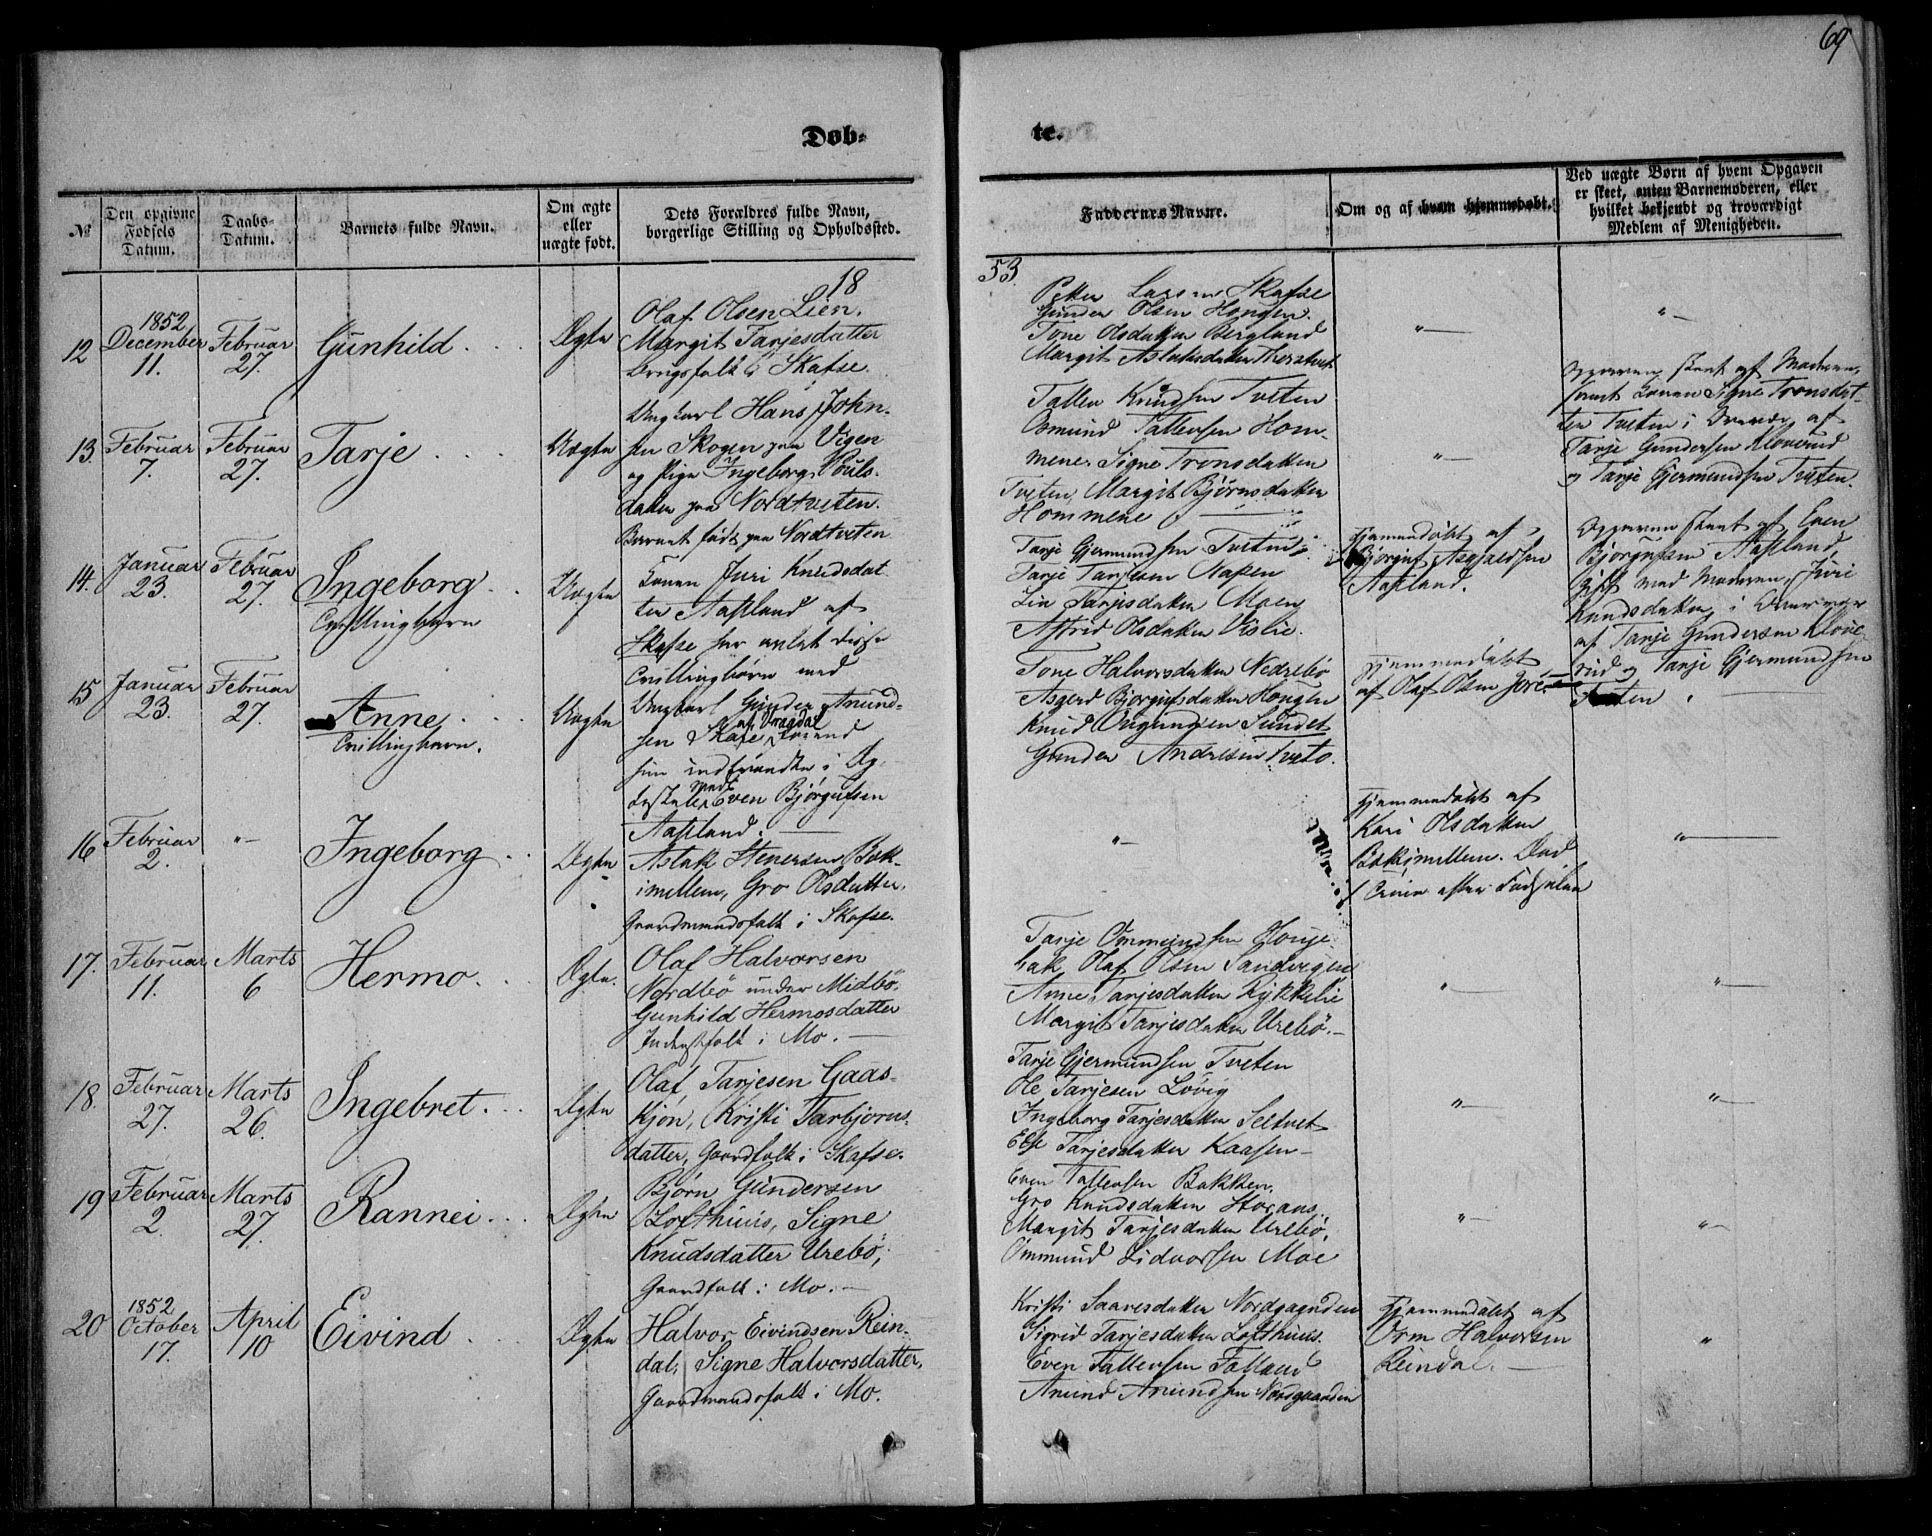 69
Døb-
te.
№
Den opgivne Fødsels Datum.
Daabs-Datum.
Barnets fulde Navn.
Om ægte eller uægte født.
Dets Forældres fulde Navn, borgerlige Stilling og Opholdssted.
Faddernes Navne.
Om og af hvem hjemmedøbt.
Ved uægte Børn af hvem Opgaven er skeet, enten Barnemoderen, eller hvilket bekjendt og troværdigt Medlem af Menigheden.
18
53.
12
1852
December
11.
Februar
27.
Gunhild
Ægte
Olaf Olsen Lien.
Margit Tarjesdatter
Brugsfolk i Skafse.
Petter Larsen Skafse
Gunder Olsen Hongen.
Tone Olsdatter Bergland
Margit Aslaksdatter
"—
"—
13.
Februar
7.
Februar
27.
Tarje
Uægte
Ungkarl Hans John-
sen Skogen paa Vigen
og Pige Ingeborg Pouls-
datter paa Nordtveten.
Barnet født paa Nordtveten
Tallev Knudsen Tveten
Osmund Tallevsen Hom-
mene. Signe Tronsdatter
Tveten, Margit Bjørnsdatter
Hommene
"—
Opgaven skeet af Moderen,
samt Konen Signe Tronsdat-
ter Tveten i Overvær af
Tarje Gundersen Klovrud
og Tarje Gjermundsen Tveten.
14.
Januar
23.
Februar
27.
Ingeborg
Tvillingbarn
Uægte
Konen Juri Knudsdat-
ter Aasland af
Skafse har avlet disse
Tvillingbørn med
Tarje Gjermundsen Tveten
Tarje Tarjesen Aasen
Liv Tarjesdatter Moen
Astrid Olsdatter Vislie.
Hjemmedøbt af
Bjørgul Aasland.
Opgaven skeet af Even
Bjørgulsen Aasland,
gift med Moderen, Juri
Knudsdatter, i Overvær
af Tarje Gundersen Klov-
rud og Tarje Gjermundsen
Tveten
15
Januar
23.
Februar
27.
Anne
Tvillingbarn.
Uægte
Ungkarl Gunder Amund-
sen Skafse af Vraadal
hun indtraadte i Æg-
teskab med Even Bjørgulsen
Aasland.
Tone Halvorsdatter Nedrebø
Asgerd Bjørgulsdatter Hongen
Knud Sundet
Gunder Andresen Tveto.
Hjemmedøbt
af Olaf Olsen
16
Februar
2.
"—
Ingeborg
Ægte
Aslak Stenersen Bak-
imellem, Gro Olsdatter.
Gaardmandsfolk i Skafse.
"—
Hjemmedøbt af
Kari Olsdatter
Bakimellem. Død
efter Fødselen
"—
17.
Februar
11.
Marts
6
Hermo
Ægte.
Olaf Halvorsen
Nordbø under Midbø.
Gunhild Hermosdatter
Inderstfolk i Mo.
Tarje Ommundsen
bak, Olaf Olsen Sandvigen
Anne Tarjesdatter
Margit Tarjesdatter Urebø.
"—
"—
18.
Februar
27.
Marts
26.
Ingebret
Ægte
Olaf Tarjesen Gaas-
kjøn, Kristi Tarbjørns-
datter, Gaardfolk i Skafse.
Tarje Gjermundsen Tveten
Ole Tarjesen Løvig
Ingeborg Tarjesdatter Seltvet
Else Tarjesdatter Kaasen
"—
"—
19
Februar
2.
Marts
27.
Rannei
Ægte
Bjørn Gundersen
Lofthuus, Signe
Knudsdatter Urebø,
Gaardfolk i Mo.
Even Tallevsen Bakken.
Gro Knudsdatter Storaas.
Margit Tarjesdatter Urebø.
Ommund Lidvorsen Moe
"—
"—
20
1852
October
17.
April
10
Eivind
Ægte
Halvor Eivindsen Rein-
dal, Signe Halvorsdatter,
Gaardmandsfolk i Mo.
Kristi Saavesdatter Nordgaarden
Sigrid Tarjesdatter Lofthuus.
Even Tallevsen
Amund Amundsen Nordgaarden
Hjemmedøbt af
Orm Halvorsen
Reindal.
"